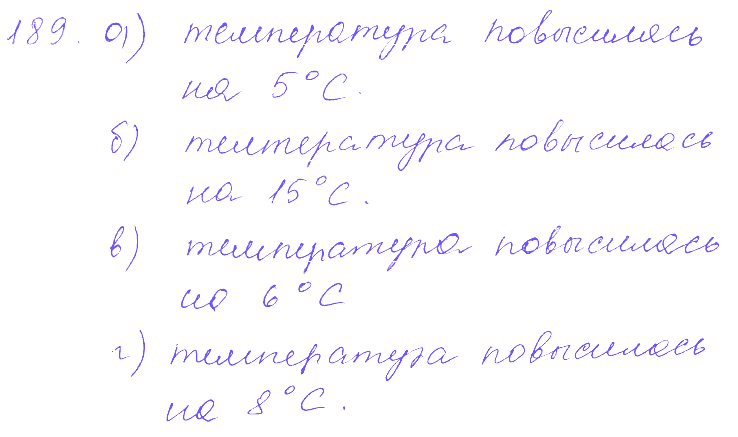 189. а) температура повысилась
на 5°С.
б) температура повысилась
на 15°С.
в) температура повысилась
на 6°С
г) температура повысилась
на 8°С.